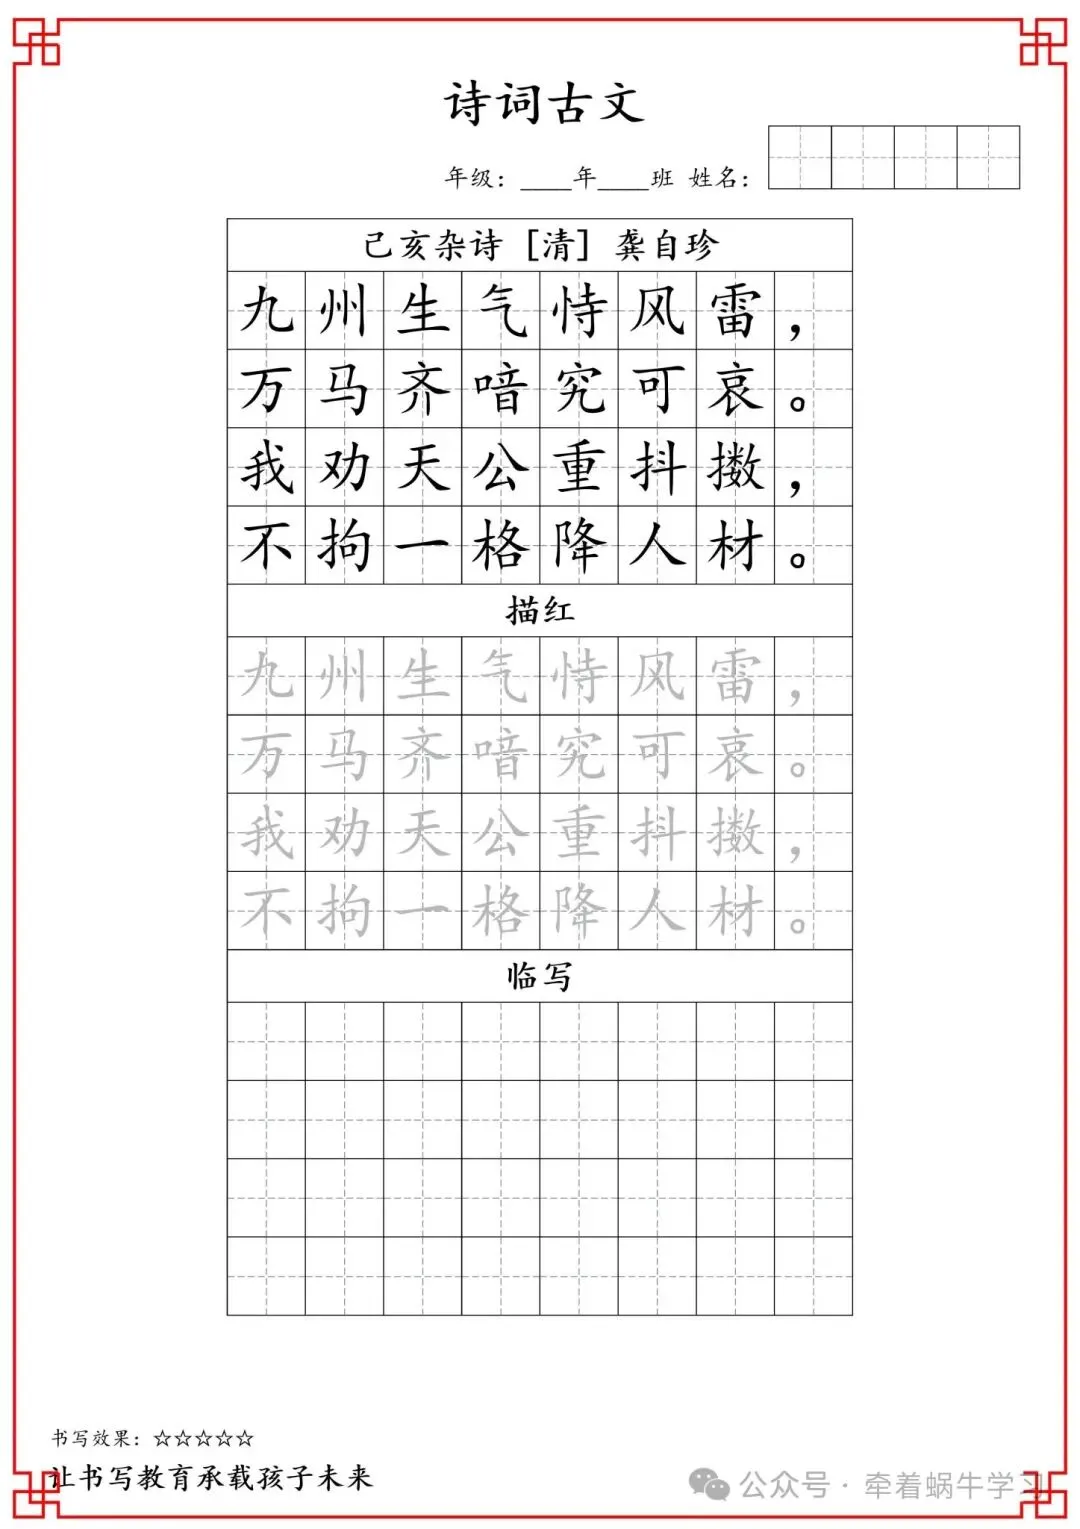 诗词古文
年级：____年____班 姓名：
己亥杂诗 [清] 龚自珍
九州生气恃风雷，
万马齐喑究可哀。
我劝天公重抖擞，
不拘一格降人材。
描红
九州生气恃风雷，
万马齐喑究可哀。
我劝天公重抖擞，
不拘一格降人材。
临写
书写效果：☆☆☆☆☆
让书写教育承载孩子未来
公众号·牵着蜗牛学习